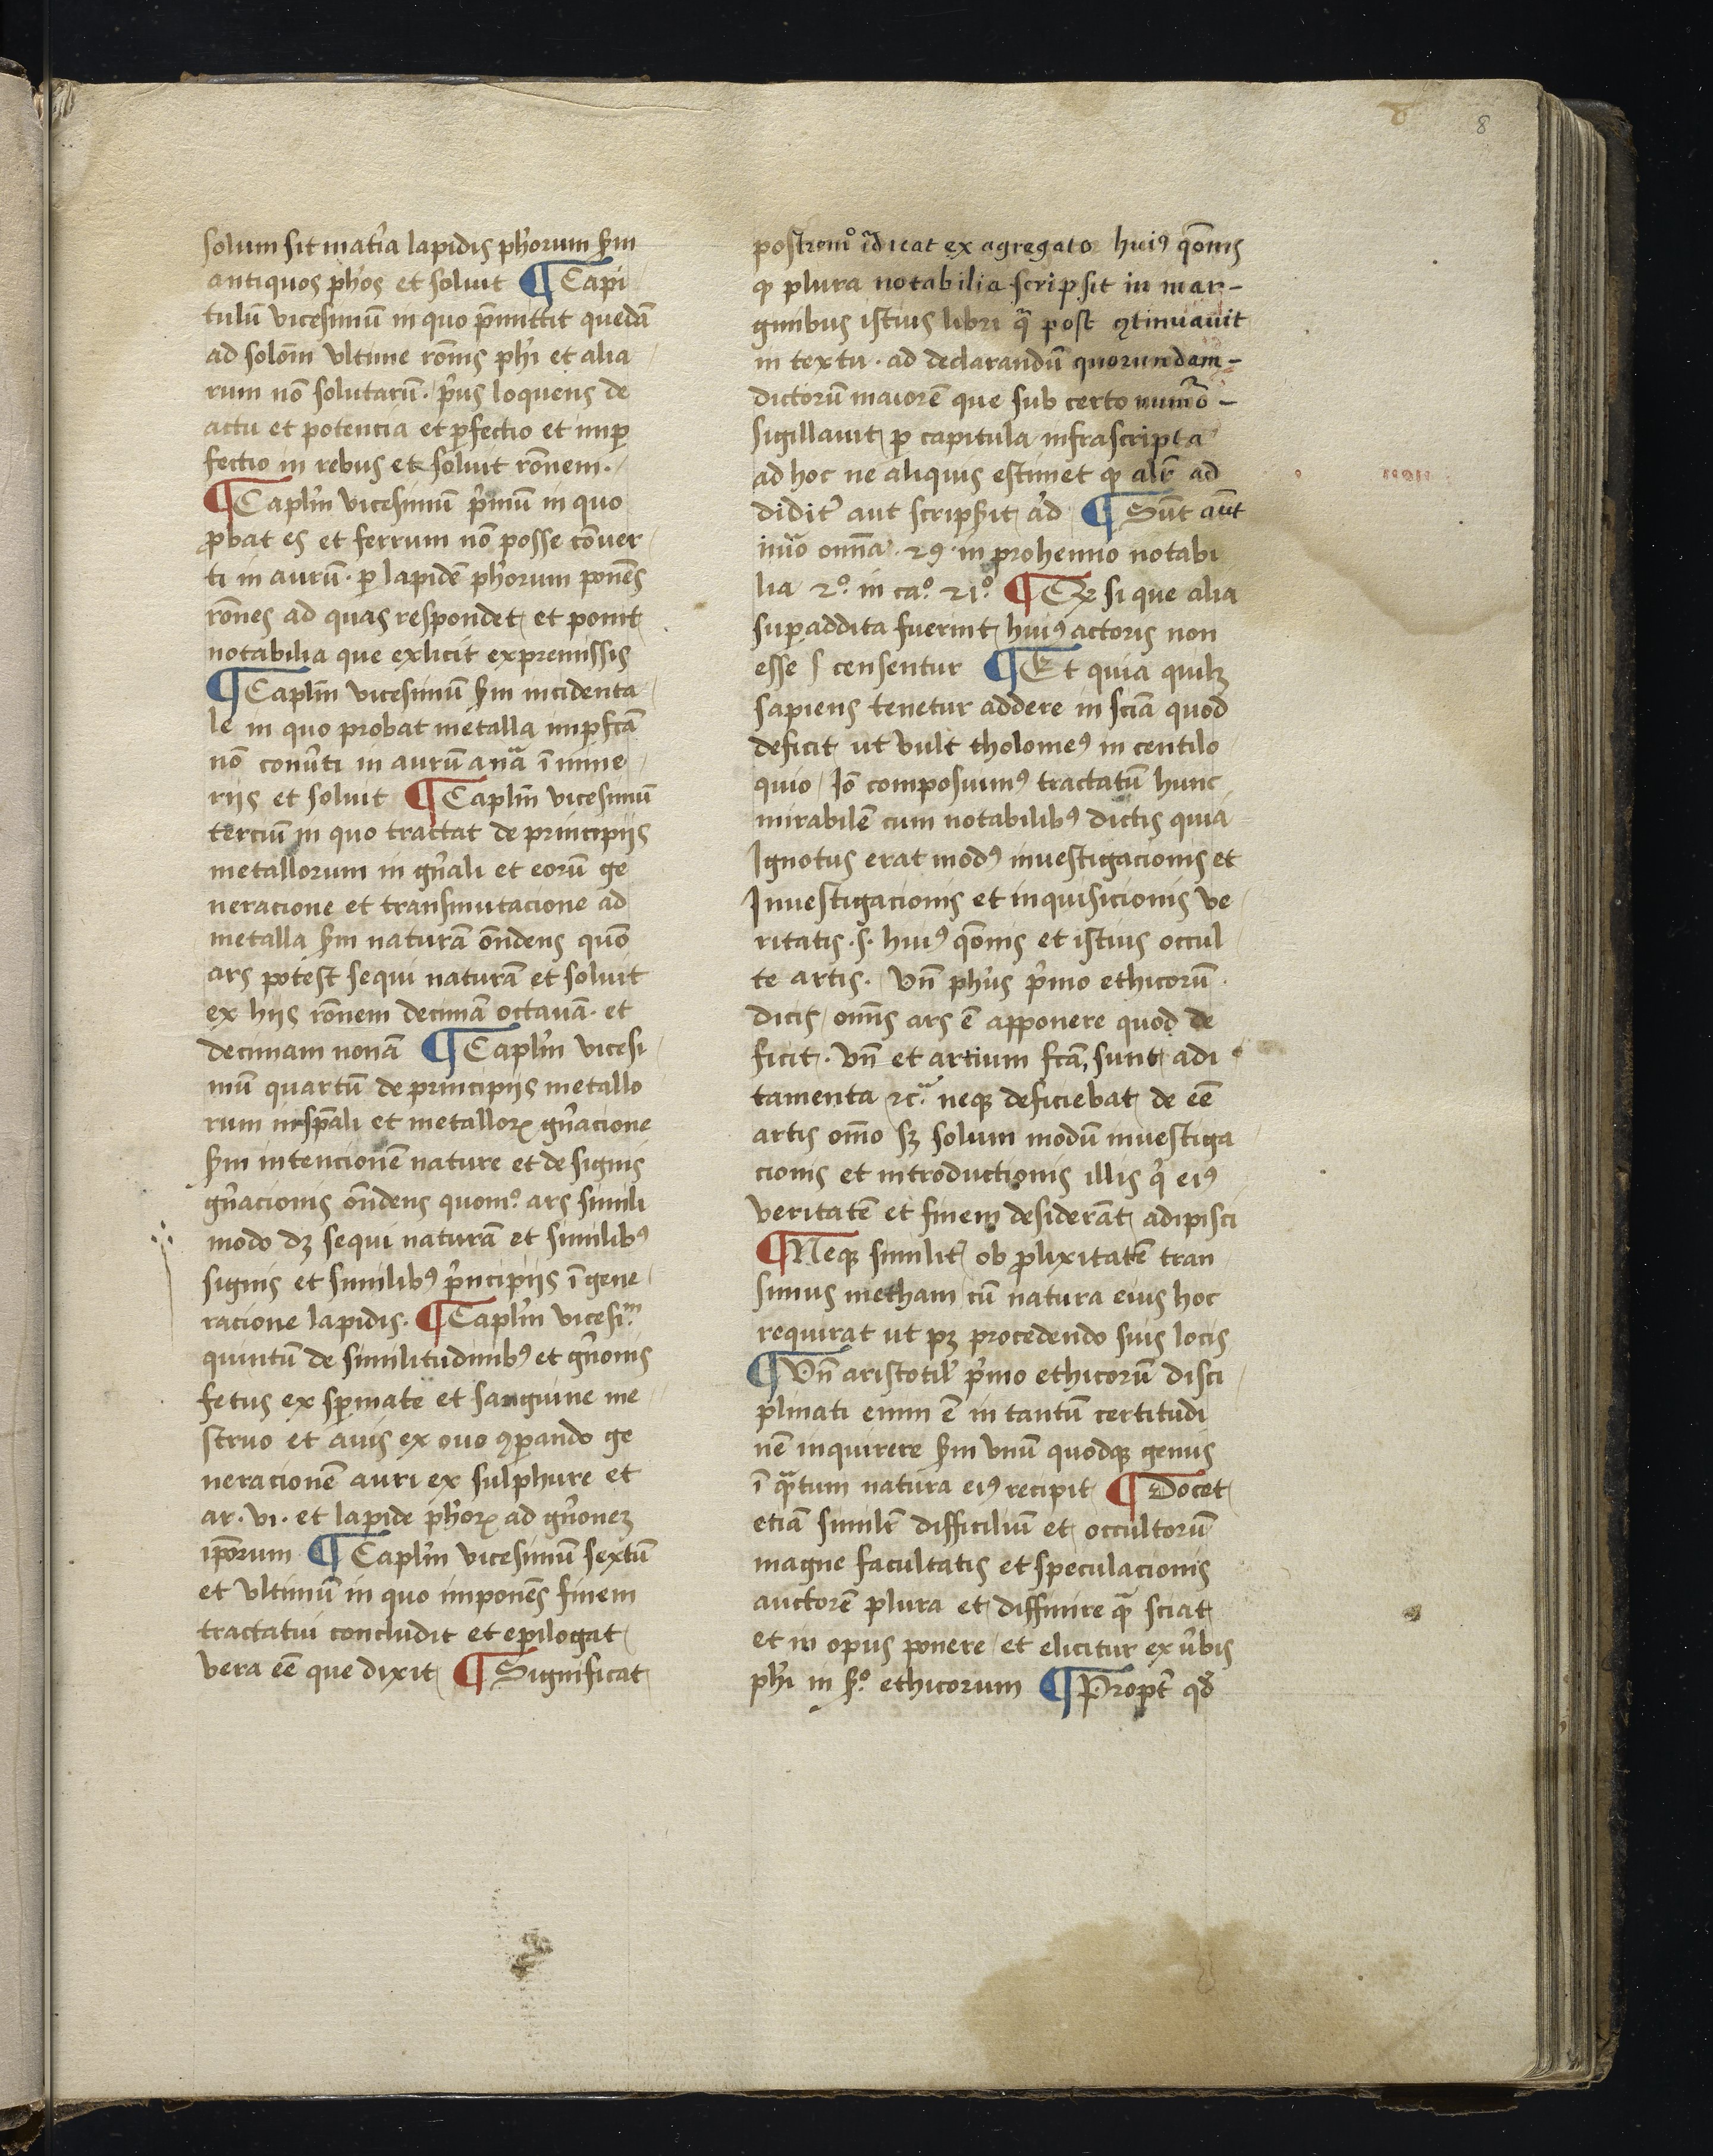 8
solum sit mat͛ia lapidis ph͛orum ẜm
antiquos ph͛os et soluit ¶ Capi
tulū vicesimū in quo p͛mittit quedā
ad solōm vltime rōnis phi͛ et alia
rum nō solutarū · p͛us loquens de
actu et potencia et ꝑfectio et imꝑ
fectio in rebus et soluit rōnem ·
¶ Caplm̄ vicesimū p͛mū in quo
ꝓbat es et ferrum nō posse cōuer
ti in aurū · ꝑ lapidē ph͛orum ponēs
rōnes ad quas respondet et ponit
notabilia que exlicit ex premissis
¶ Caplm̄ vicesimū ẜm incidenta
le in quo probat metalla imꝑfcā
nō conu͛ti in aurū anᷓa ī mine
riis et soluit ¶ Caplm̄ vicesimū
terciū in quo tractat de principiis
metallorum in gn͛ali et eorū ge
neracione et transmutacione ad
metalla ẜm naturā on̄dens quō
ars potest sequi naturā et soluit
ex hiis rōnem decimā octauā · et
decimam nonā ¶ Caplm̄ vicesi
mū quartū de principiis metallo
rum in sp̄ali et metalloꝝ gn͛acione
ẜm intencionē nature et de signis
gn͛acionis on̄dens quomͦ ars simili
modo dꝫ sequi naturā et similibꝰ
signis et similibꝰ p͛ncipiis ī gene
racione lapidis · ¶ Caplm̄ vicesi.ᵐ
quintū de similitudinibꝰ et gn͛onis
fetus ex sꝑmate et sanguine me
struo et auis ex ouo ꝯꝑando ge
neracionē auri ex sulphure et
ar · vi · et lapide ph͛oꝝ ad gn͛oneꝫ
ip̄orum ¶ Caplm̄ vicesimū sextū
et vltimū in quo imponēs finem
tractatui concludit et epilogat
vera eē que dixit ¶ Significat
postremͦ īdicat ex agregato huiꝰ q̄onis
ꝙ plura notabilia scripsit in mar-
ginibus istius libri qᷓ post ꝯtinuauit
in textu · ad declarandū quorundam-
dictorū maiorē que sub certo num͛o -
sigillauit ꝑ capitula infrascripta
ad hoc ne aliquis estimet ꝙ alr̄ ad
didit͛ aut scripẜit ad ¶ Sūt aūt
omn̄a · 29 · in prohemio notabi
lia 2ͦ · in caͦ · 21ͦ · ¶ si que alia
suꝑaddita fuerint huiꝰ actoris non
esse censentur ¶ Et quia quilꝫ
sapiens tenetur addere in sciā quod
deficit ut vult tholomeꝰ in centilo
quio / Iō composuimꝰ tractatū hunc
mirabilē cum notabilibꝰ dictis quia
Ignotus erat modꝰ inuestigacionis et
Inuestigacionis et inquisicionis ve
ritatis · s · huiꝰ q̄onis et istius occul
te artis · Vn̄ ph͛us p͛mo ethicorū ·
dicis / omīs ars ē apponere quod de
ficit · vn̄ et artium fcā, sunt adi
tamenta ⁊cᷓ · neqꝫ deficiebat de eē
artis om̄o sꝫ solum modū inuestiga
cionis et introductionis illis q͛ eiꝰ
veritatē et finem desiderāt adipisci
¶ Neqꝫ similit͛ ob ꝓlixitatē tran
simus metham cū natura eius hoc
requirat ut pꝫ procedendo suis locis
¶ Vn̄ aristotil͛ p͛mo ethicorū disci
plinati enim ē in tantū certitudi
nē inquirere ẜm vnū quodqꝫ genus
ī qᷓtum natura eiꝰ recipit ¶ Docet
etiā similr̄ difficiliū et occultorū
magne facultatis et speculacionis
auctorē plura et diffinire qᷓ sciat
et in opus ponere / et elicitur ex v͛bis
phi͛ in ẜͦ · ethicorum ¶ Propt͛ qđ